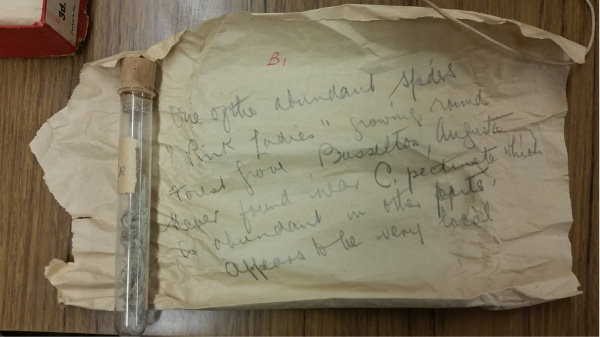 3d.
B,
One of the abundant spides
"Pink Ladies" growing round
Forest Grove, Busselton, Augusta
Never found near C. pectinata which
is abundant in other parts,
appears to be very local